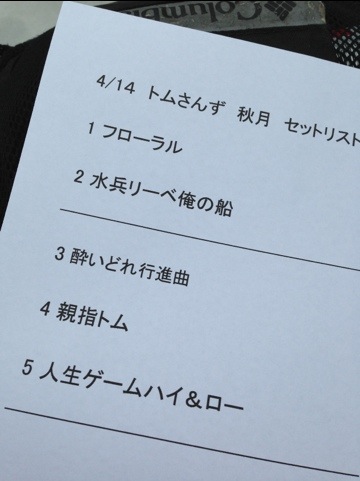 Columbia
4/14 トムさんず 秋月 セットリスト
1 フローラル
2 水兵リーベ俺の船
3 酔いどれ行進曲
4 親指トム
5 人生ゲームハイ&ロー